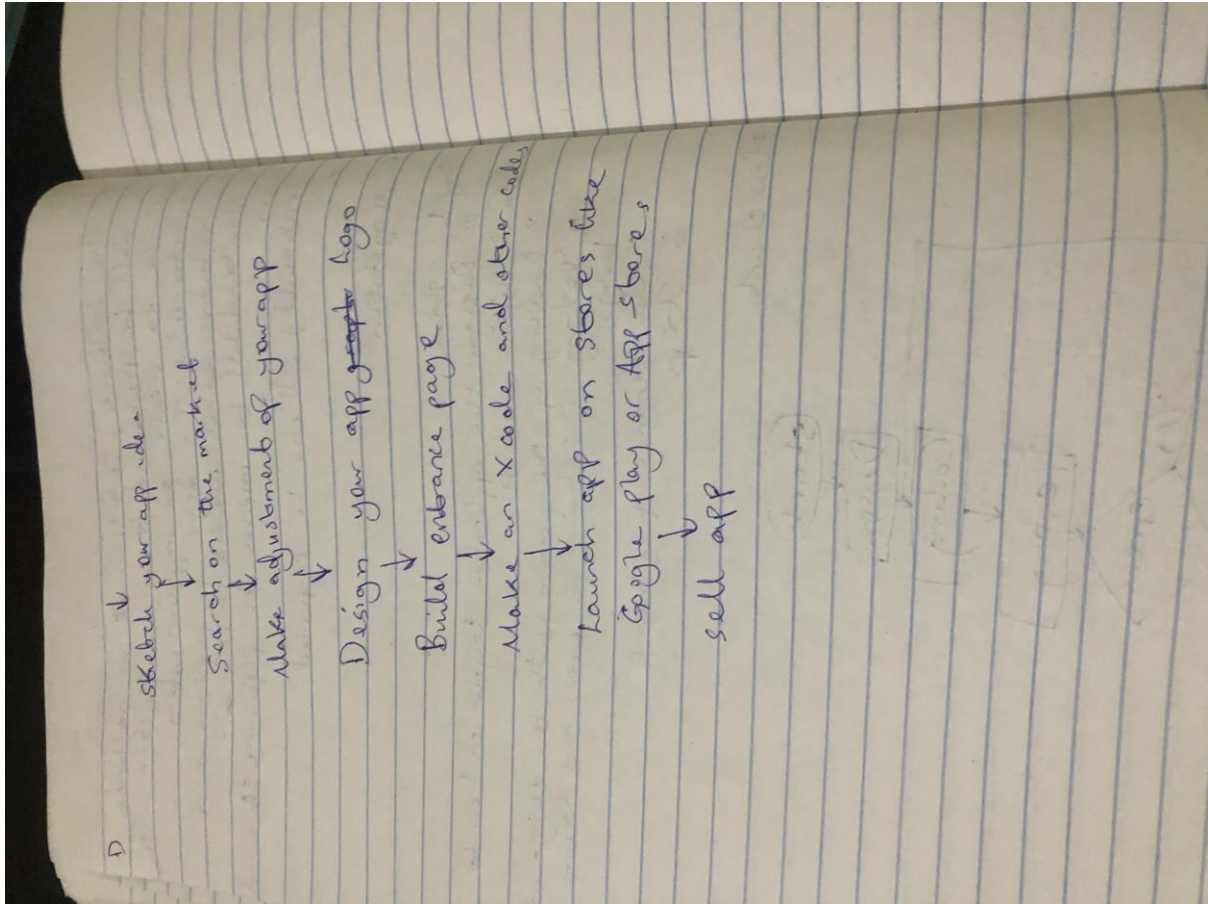 D
↓
sketch your app idea
↓
Search on the market
↓
Make adjustment of your app
↓
Design your app Logo
↓
Build entrance page
↓
Make an Xcode and other codes
↓
Launch app on stores like
Google play or App-stores
↓
sell app